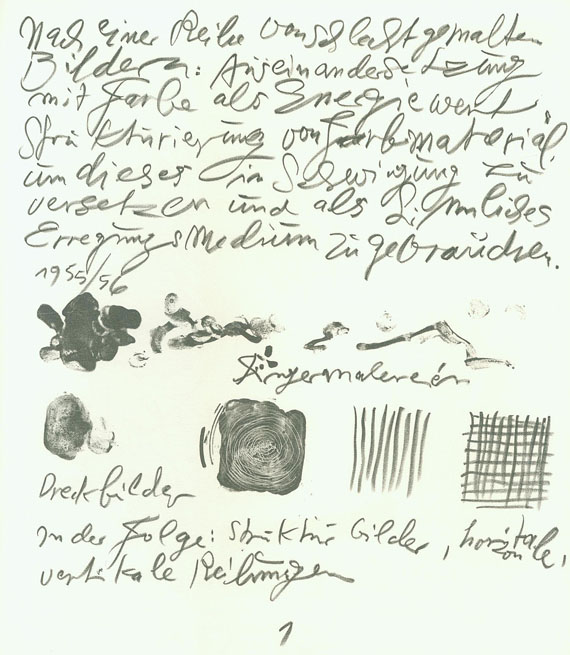 Nach einer Reihe von schlecht gemalten
Bildern: Auseinandersetzung
mit Farbe als Energiewert
Strukturierung von Farbmaterial,
um dieses in Schwingung zu
versetzen und als sinnliches
Erregungsmedium zu gebrauchen.
1955/56
Fingermalereien
Dreckbilder
in der Folge: Strukturbilder, horizontale,
vertikale Reihungen
1